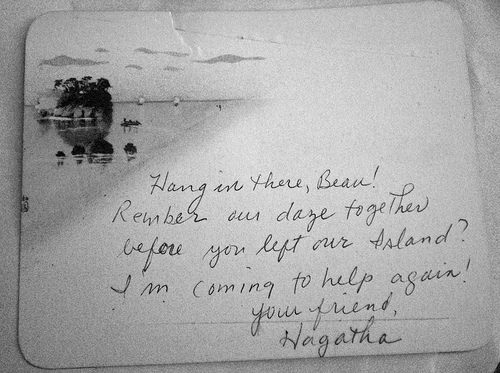 Hang in there, Beau!
Rember our daze together
before you left our Island?
I'm coming to help again!
your friend,
Hagatha